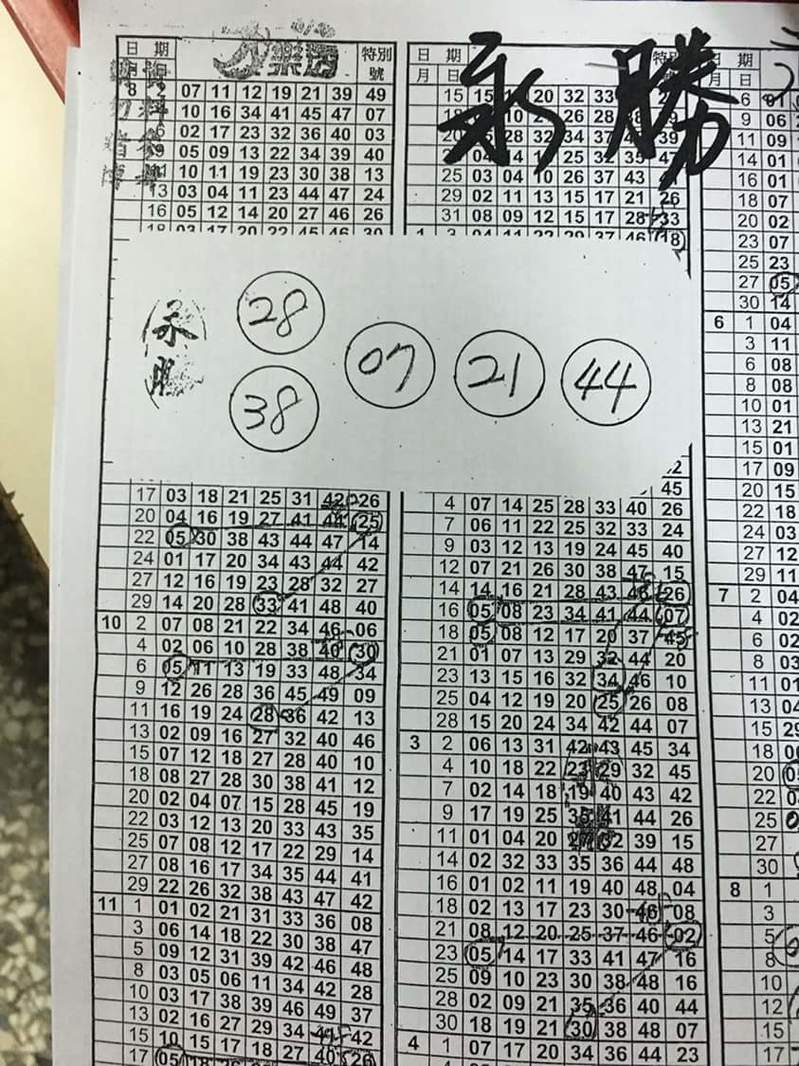 永勝
日 期 特別號
日 期
月 日
8 2 07 11 12 19 21 39 49
10 16 34 41 45 47 07
02 17 23 32 36 40 03
05 09 13 22 34 39 40
10 11 19 23 30 38 13
13 03 04 11 23 44 47 24
16 05 12 14 20 27 46 26
18 03 17 20 22 45 46 30
25 03 04 10 26 37 43
29 02 11 13 15 17 21 26
31 08 09 12 15 17 28 33
1 3 04 11 22 29 37 46 18
永勝
28
38
07
21
44
17 03 18 21 25 31 42 26
20 04 16 19 27 41 44 25
22 05 30 38 43 44 47 14
24 01 17 20 34 43 44 42
27 12 16 19 23 28 32 27
29 14 20 28 33 41 48 40
10 2 07 08 21 22 34 46 06
4 02 06 10 28 38 40 30
6 05 11 13 19 33 48 34
9 12 26 28 36 45 49 09
11 16 19 24 28 36 42 13
13 02 09 16 27 32 40 46
15 07 12 18 27 28 40 10
18 08 27 28 30 38 41 12
20 02 04 07 15 28 45 19
22 03 12 13 20 33 43 35
25 07 08 12 17 22 29 14
27 08 16 17 34 35 44 41
29 22 26 32 38 43 47 42
11 1 01 02 21 31 33 36 08
3 06 14 18 22 30 38 47
5 09 12 31 39 42 46 48
8 03 05 06 11 34 42 28
10 03 17 38 39 46 49 37
13 02 16 27 29 34 42
15 10 15 17 18 27 40 26
17 05
45
4 07 14 25 28 33 40 26
7 06 11 22 25 32 33 24
9 03 12 13 19 24 45 40
12 07 21 26 30 38 47 15
14 14 16 21 28 43 46 26
16 05 08 23 34 41 44 07
18 05 08 12 17 20 37 45
21 01 07 13 29 32 44 20
23 13 15 16 32 34 46 10
25 04 12 19 20 25 26 08
28 15 20 24 34 42 44 07
3 2 06 13 31 42 43 45 34
4 10 18 22 23 29 32 45
7 02 14 18 19 40 43 42
9 17 19 25 35 41 44 26
11 01 04 20 27 32 39 15
14 02 32 33 35 36 44 48
16 01 02 11 19 40 48 04
18 02 13 17 23 30 46 08
21 08 12 20 25 37 46 02
23 05 14 17 33 41 47 16
25 09 10 23 30 38 48 16
28 02 09 21 35 36 40 44
30 18 19 21 30 38 48 07
4 1 07 17 20 34 36 44 23
日
6 01
9 06
11 09
14 01
16 01
18 07
20 02
23 07
25 23
27 05
30 14
6 1 04
3 11
6 08
8 08
10 01
13 21
15 01
17 09
20 15
22 18
24 03
27 12
29 11
7 2 04
4 02
6 02
8 03
11 01
13 04
15 29
18 06
20
22
25
27
30
8 1
3
5
8
10
12
15
17